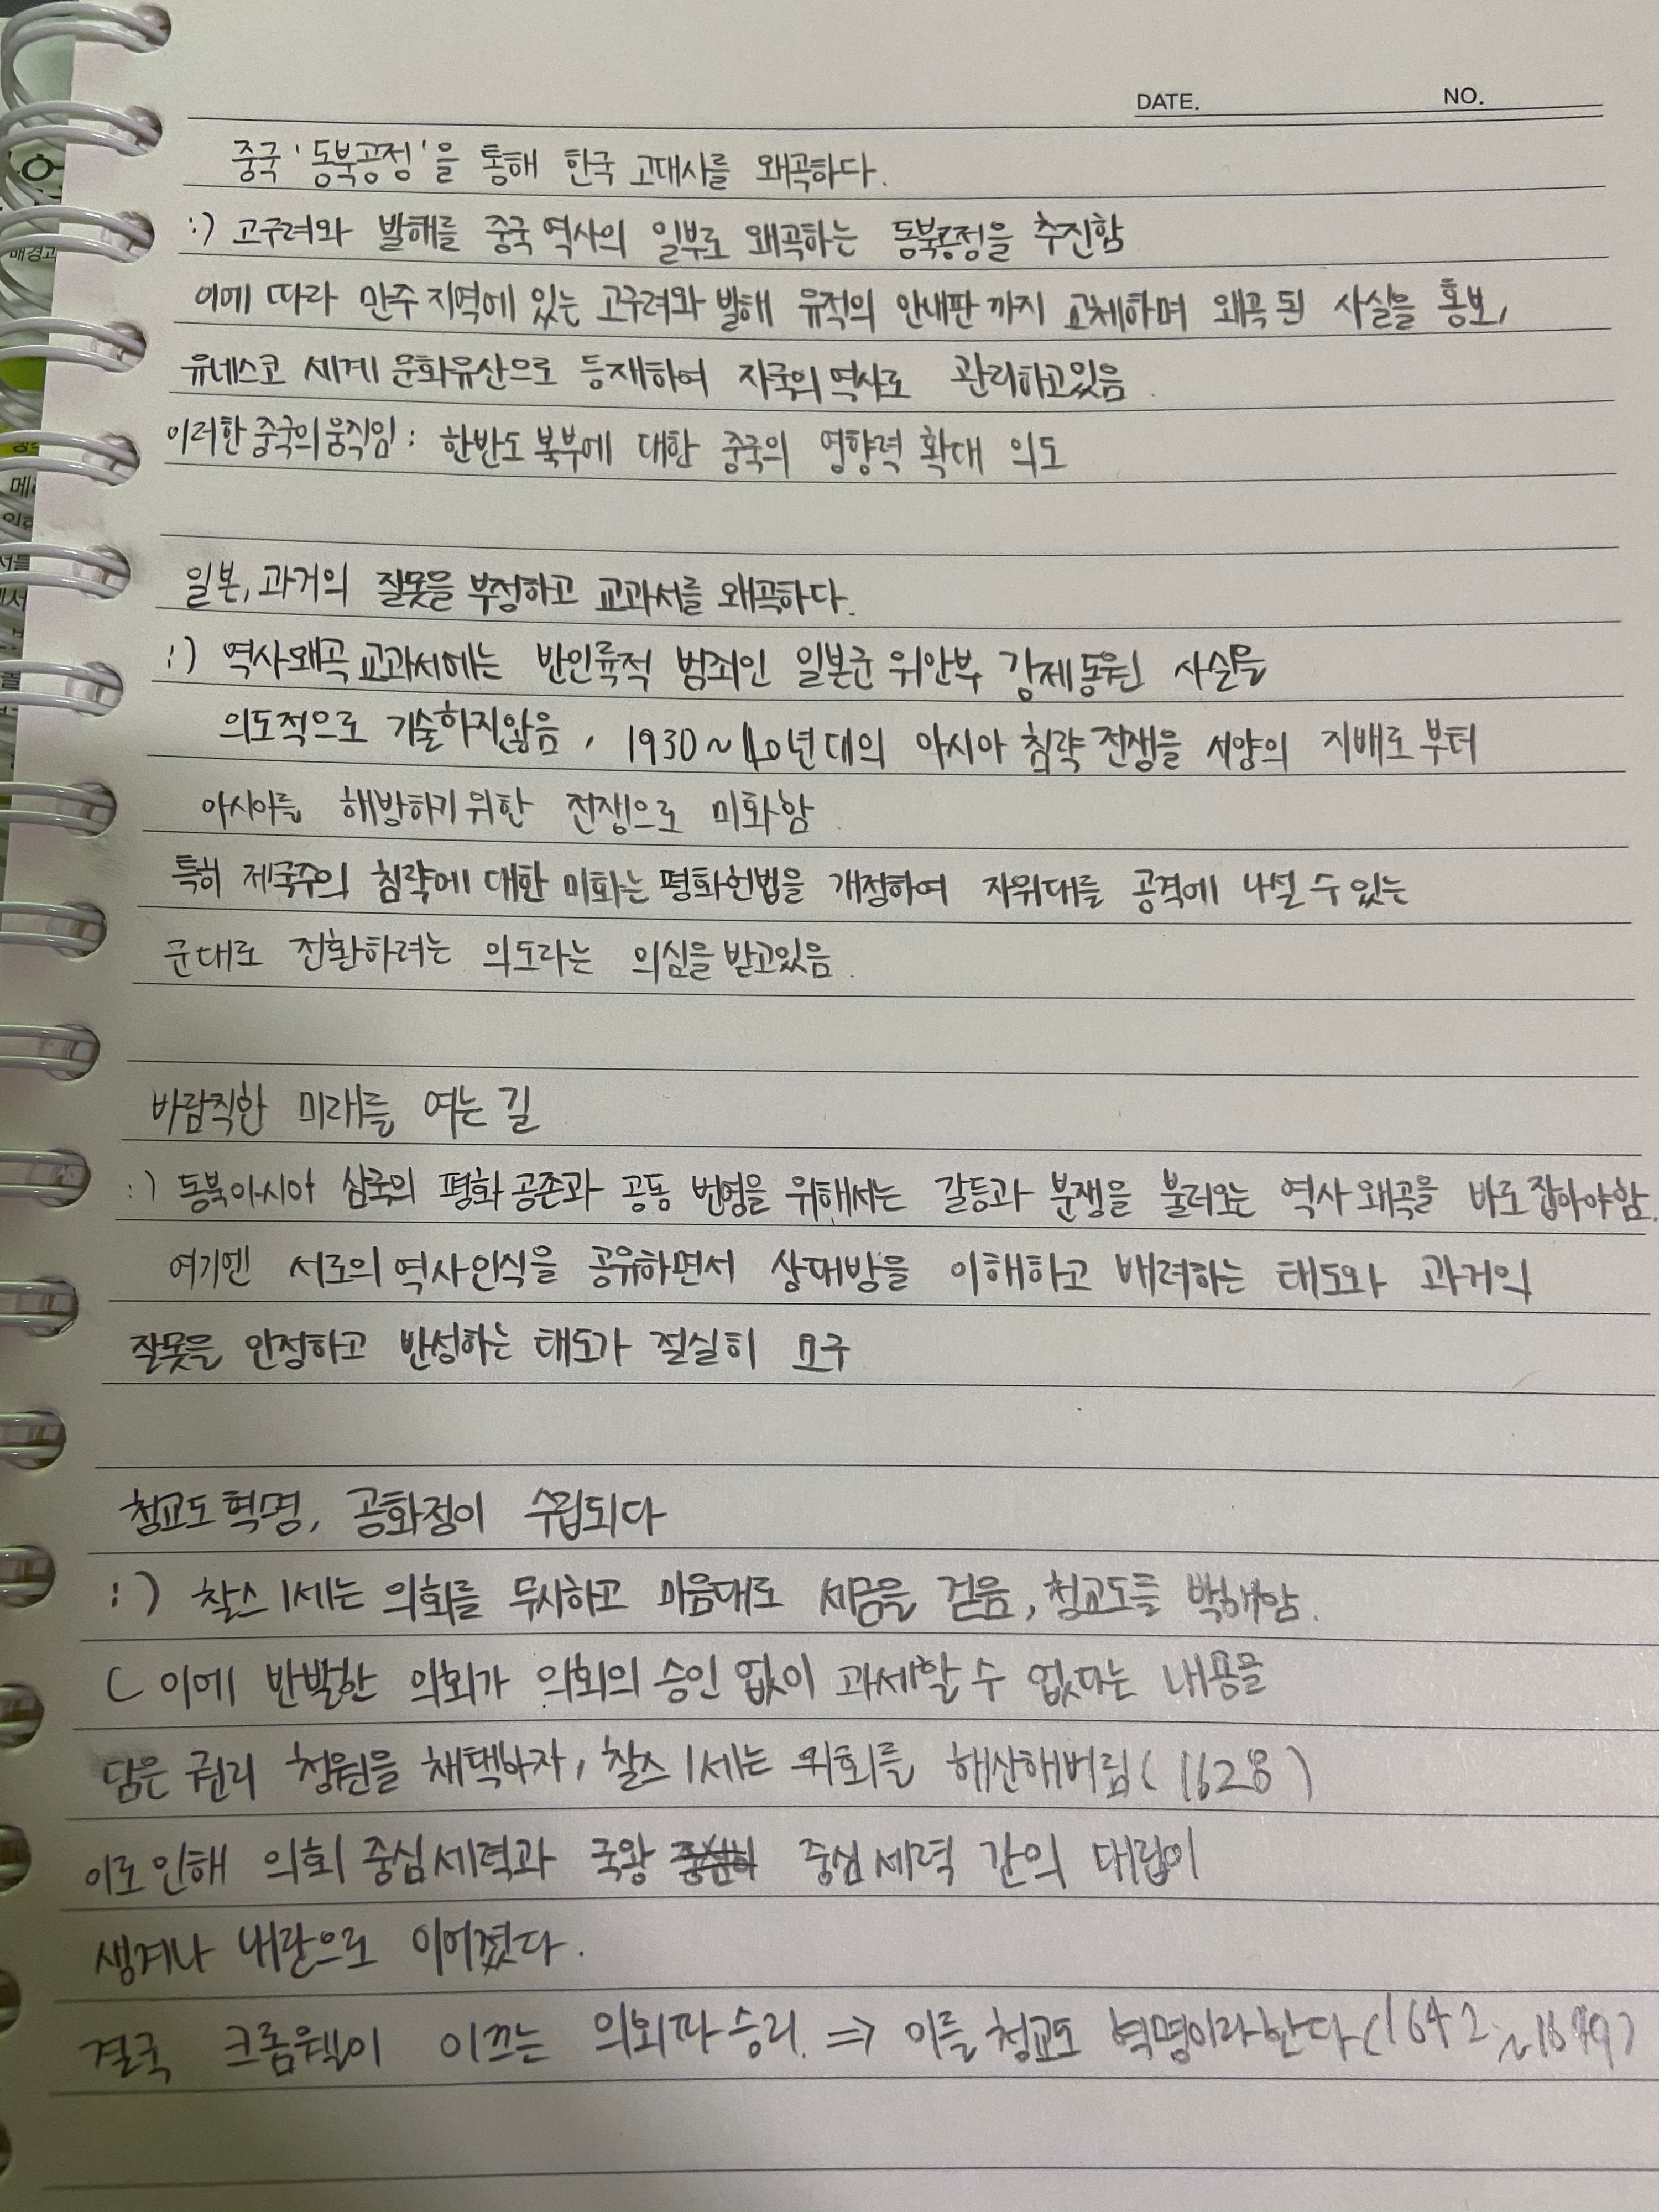 DATE. NO.
중국 '동북공정'을 통해 한국 고대사를 왜곡하다.
:) 고구려와 발해를 중국 역사의 일부로 왜곡하는 동북공정을 추진함
이에 따라 만주 지역에 있는 고구려와 발해 유적의 안내판 까지 교체하며 왜곡 된 사실을 홍보,
유네스코 세계 문화유산으로 등재하여 자국의 역사로 관리하고있음.
이러한 중국의 움직임 : 한반도 북부에 대한 중국의 영향력 확대 의도
일본, 과거의 잘못을 부정하고 교과서를 왜곡하다.
:) 역사왜곡 교과서에는 반인륜적 범죄인 일본군 위안부 강제동원 사실을
의도적으로 기술하지않음, 1930~40년대의 아시아 침략 전쟁을 서양의 지배로 부터
아시아를 해방하기 위한 전쟁으로 미화함.
특히 제국주의 침략에 대한 미화는 평화헌법을 개정하여 자위대를 공격에 나설 수 있는
군대로 전환하려는 의도라는 의심을 받고있음.
바람직한 미래를 여는 길
:) 동북아시아 삼국의 평화 공존과 공동 번영을 위해서는 갈등과 분쟁을 불러오는 역사 왜곡을 바로 잡아야함.
여기엔 서로의 역사인식을 공유하면서 상대방을 이해하고 배려하는 태도와 과거의
잘못을 인정하고 반성하는 태도가 절실히 요구
청교도 혁명, 공화정이 수립되다
:) 찰스 1세는 의회를 무시하고 마음대로 세금을 걷음, 청교도를 박해함.
( 이에 반발한 의회가 의회의 승인 없이 과세할 수 없다는 내용을
담은 권리 청원을 채택하자, 찰스 1세는 의회를 해산해버림 (1628)
이로 인해 의회 중심세력과 국왕 중심세력 간의 대립이
생겨나 내란으로 이어졌다.
결국 크롬웰이 이끄는 의회파 승리. ⇒ 이를 청교도 혁명이라한다 (1642~1649)